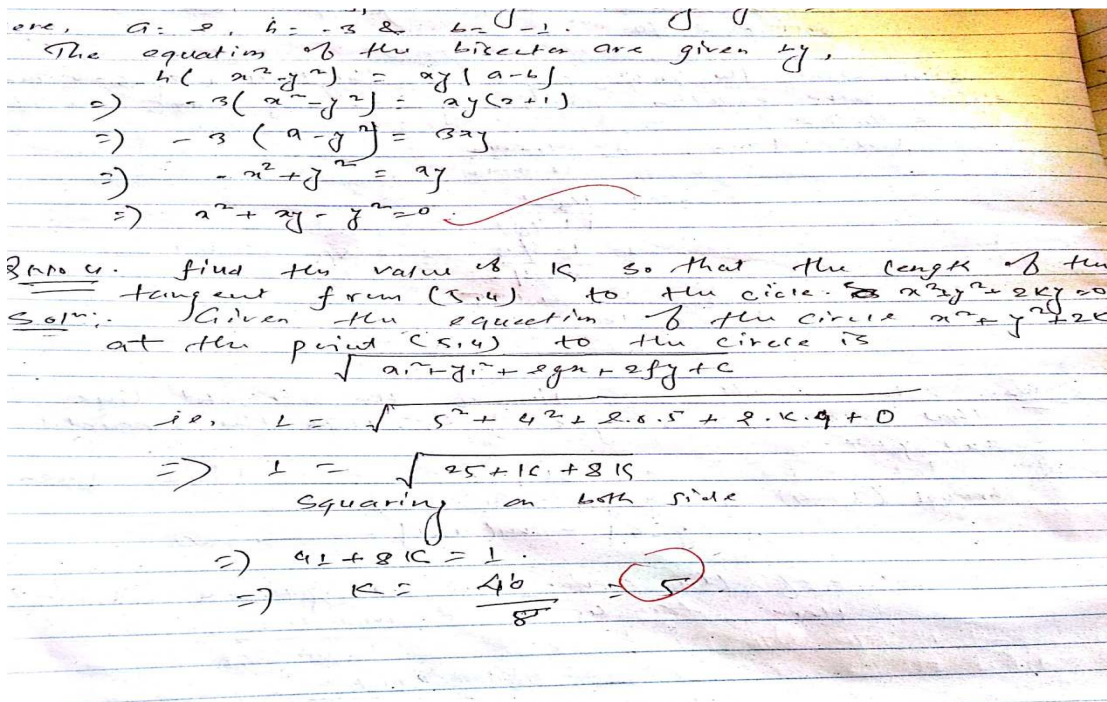 a = 2, h = -3 & b = -1.
The equation of the bisector are given by,
h( x²-y²) = xy( a-b)
=) - 3( x²-y²) = xy(2+1)
=) - 3 ( x-y²) = 3xy
=) - x²+y² = xy
=) x²+ xy - y²=0.
4. find the value of K so that the length of the
tangent from (5,4) to the circle x²+y²+2Ky=0
Solⁿ:. Given the equation of the circle x²+y²+2K
at the point (5,4) to the circle is
√x₁²+y₁²+2gx+2fy+c
ie, 1 = √5²+4²+2.0.5+2.K.4+0
=> 1 = √25+16+8K
Squaring on both side
=) 41+8K = 1.
=) K = 40/8 = 5